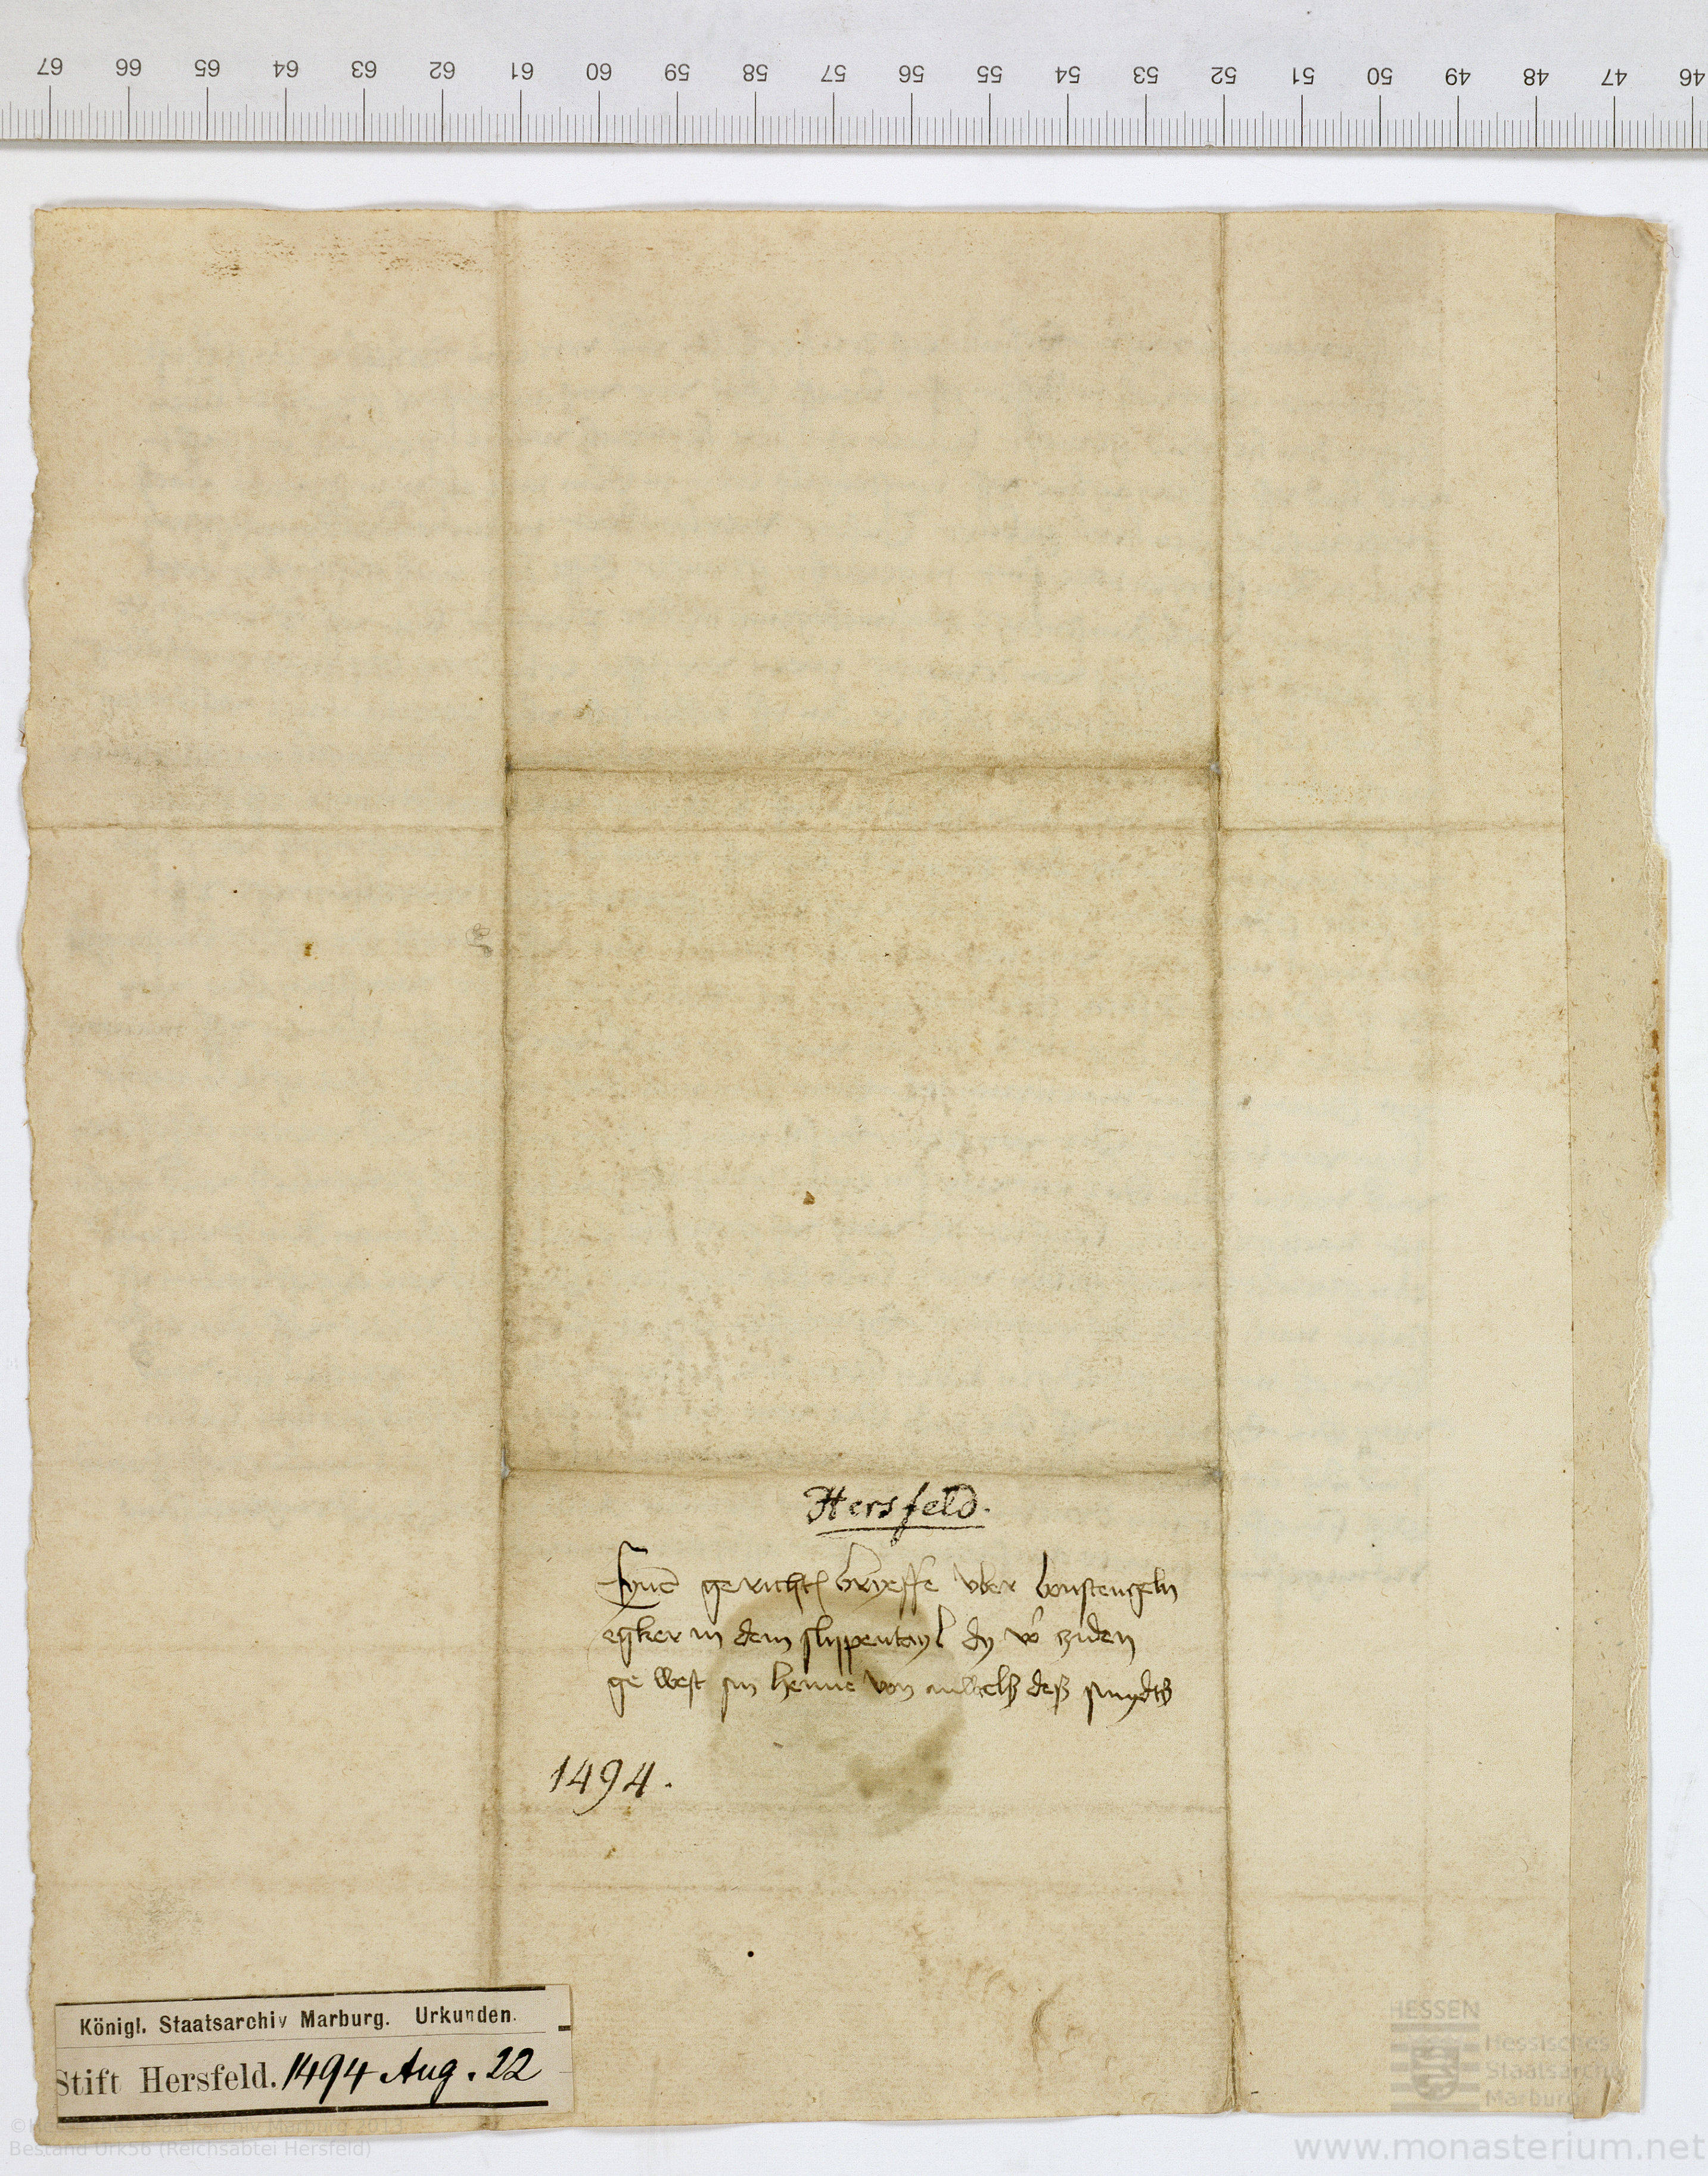 67 66 65 64 63 62 61 60 59 58 57 56 55 54 53 52 51 50 49 48 47 46
Hersfeld.
Eynē gerichtſ bryeffe vber
egker in dem slyppentayl dy vō ziden
ge west sin henne von deß smydtß
1494.
Königl. Staatsarchiv Marburg. Urkunden.
Stift Hersfeld. 1494 Aug. 22
HESSEN
Hessisches
Staatsarchiv
Marburg
© Hessisches Staatsarchiv Marburg 2013
Bestand Urk56 (Reichsabtei Hersfeld)
www.monasterium.net